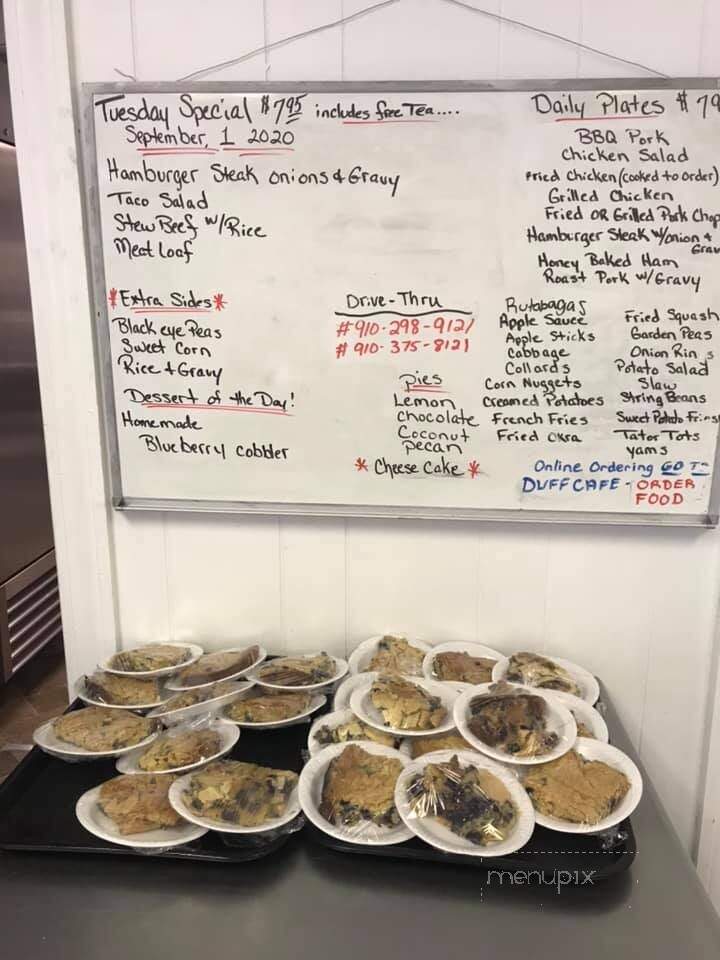 Tuesday Special $7.95 includes free Tea....
September, 1 2020
Hamburger Steak onions & Gravy
Taco Salad
Stew Beef w/Rice
Meat Loaf
*Extra Sides*
Black eye Peas
Sweet Corn
Rice & Gravy
Dessert of the Day!
Homemade
Blueberry cobbler
Drive-Thru
#910-298-9121
#910-375-8121
pies
Lemon
chocolate
Coconut
pecan
* Cheese Cake *
Daily Plates $
BBQ Pork
Chicken Salad
Fried Chicken (cooked to order)
Grilled Chicken
Fried OR Grilled Pork Chop
Hamburger Steak w/onion &
Grav
Honey Baked Ham
Roast Pork w/Gravy
Rutabagas
Apple Sauce
Apple Sticks
Cabbage
Collards
Corn Nuggets
Creamed Potatoes
French Fries
Fried Okra
Fried Squash
Garden Peas
Onion Rin s
Potato Salad
Slaw
String Beans
Sweet Potato Fries
Tator Tots
yams
Online Ordering GO TO
DUFFCAFE - ORDER.
FOOD
menupix